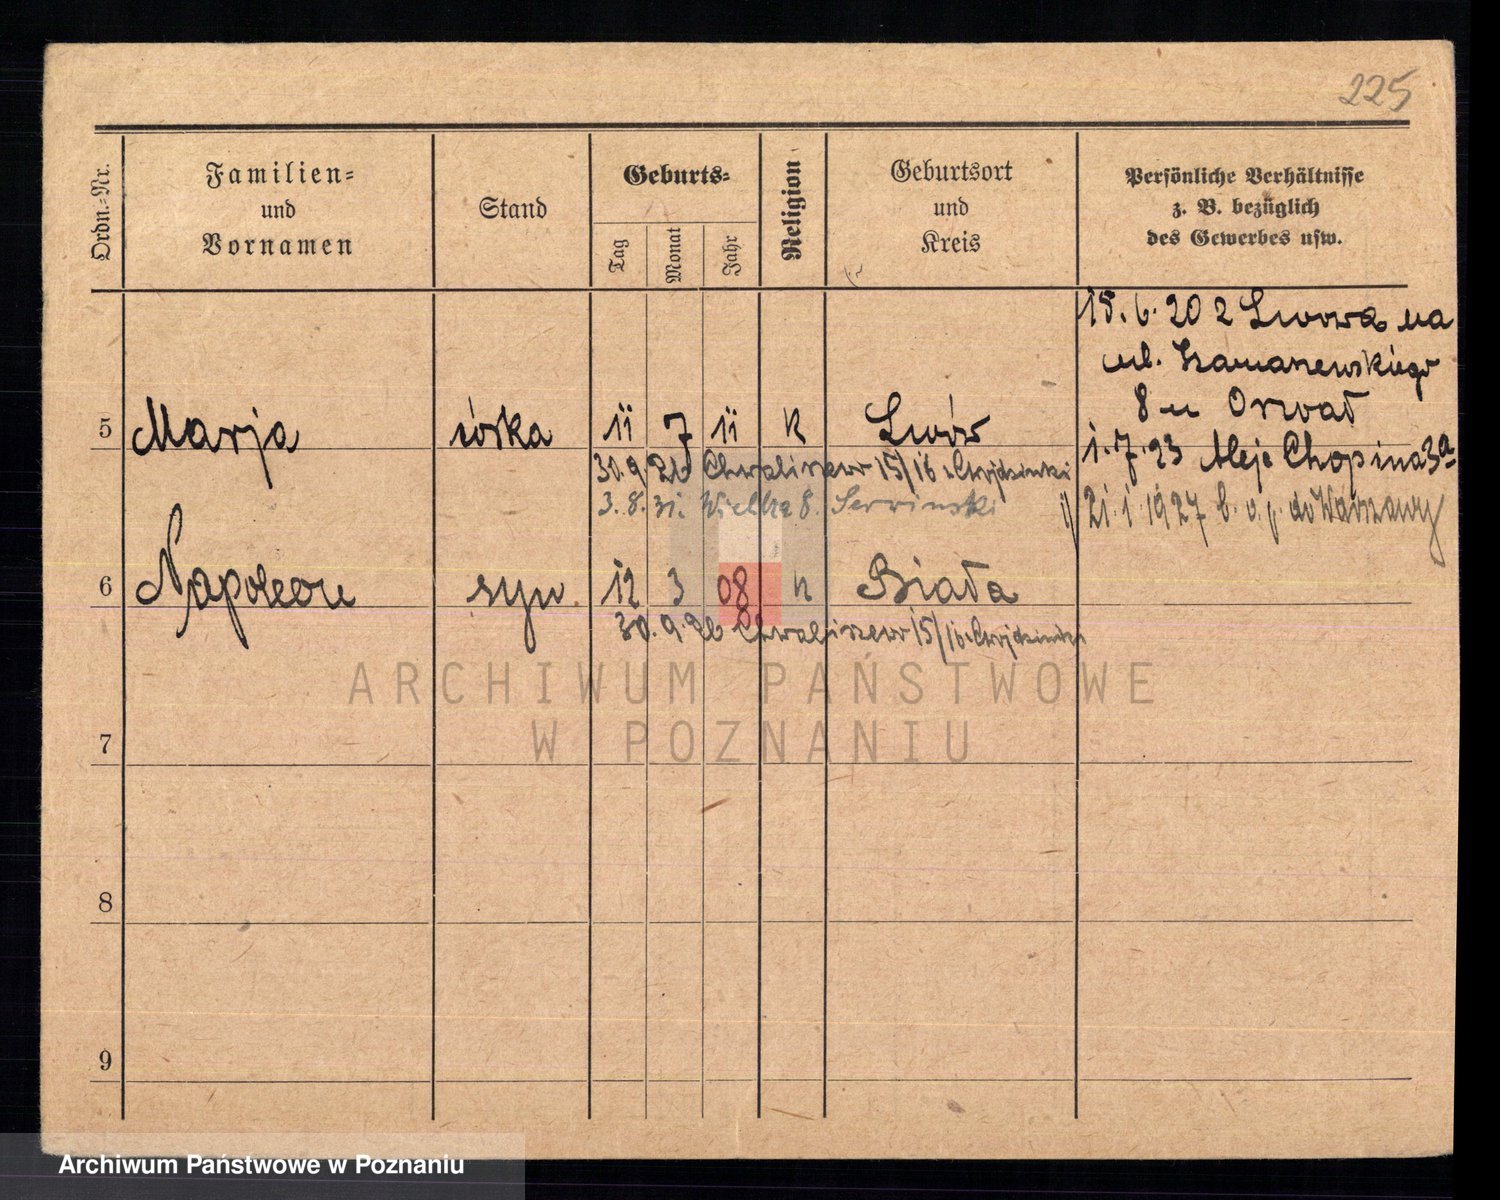 225
Ordn.-Nr.
Familien-
und
Vornamen
Stand
Geburts-
Tag
Monat
Jahr
Religion
Geburtsort
und
Kreis
Persönliche Verhältnisse
z. B. bezüglich
des Gewerbes usw.
15. 6. 20 z Lwowa na
ul.
8 u
5 Marja córka 11 7 11 k Lwów
1. 7. 23 Aleje Chopina 3a
30.9.26 Chwaliszewo 15/16
3. 8. 31. Wielka 8.
21. 1. 1927 do Warszawy
6 Napoleon syn 12 3 08 k Biała
30. 9. 26 Chwaliszewo 15/16
ARCHIWUM PAŃSTWOWE
W POZNANIU
7
8
9
Archiwum Państwowe w Poznaniu